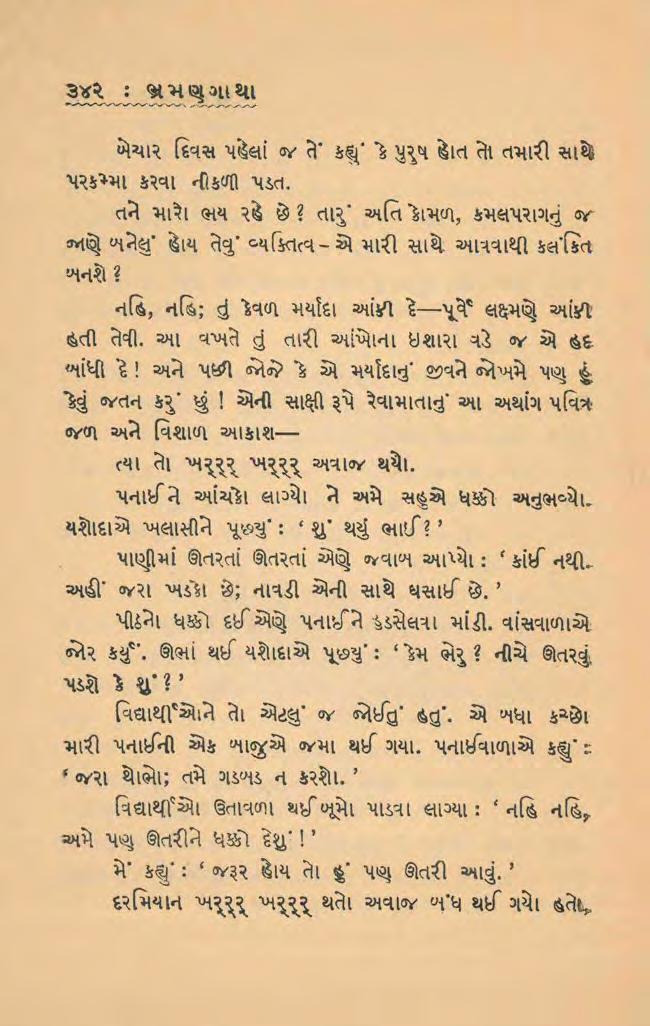 ૩૪૨ : ભ્રમણગાથા
બેચાર દિવસ પહેલાં જ તેં કહ્યું કે પુરુષ હોત તો તમારી સાથે
પરકમ્મા કરવા નીકળી પડત.
તને મારો ભય રહે છે? તારું અતિ કોમળ, કમલપરાગનું જ
જાણે બનેલું હોય તેવું વ્યક્તિત્વ – એ મારી સાથે આવવાથી કલંકિત
બનશે ?
નહિ, નહિ; તું કેવળ મર્યાદા આંકી દે—પૂર્વે લક્ષ્મણે આંકી
હતી તેવી. આ વખતે તું તારી આંખોના ઇશારા વડે જ એ હદ
બાંધી દે! અને પછી જોજે કે એ મર્યાદાનું જીવને જોખમે પણ હું
કેવું જતન કરું છું ! એની સાક્ષી રૂપે રેવામાતાનું આ અથાંગ પવિત્ર
જળ અને વિશાળ આકાશ—
ત્યા તો ખરૂરૂરૂ ખરૂરૂરૂ અવાજ થયો.
પનાઈને આંચકો લાગ્યો ને અમે સહુએ ધક્કો અનુભવ્યો.
યશોદાએ ખલાસીને પૂછ્યું : ‘ શું થયું ભાઈ?’
પાણીમાં ઊતરતાં ઊતરતાં એણે જવાબ આપ્યો : ‘ કાંઈ નથી.
અહીં જરા ખડકો છે; નાવડી એની સાથે ઘસાઈ છે. ’
પીઠનો ધક્કો દઈ એણે પનાઈને હડસેલવા માંડી. વાંસવાળાએ
જોર કર્યું. ઊભાં થઈ યશોદાએ પૂછ્યું : ‘ કેમ ભેરુ ? નીચે ઊતરવું
પડશે કે શું ?’
વિદ્યાર્થીઓને તો એટલું જ જોઈતું હતું. એ બધા કચ્છો
મારી પનાઈની એક બાજુએ જમા થઈ ગયા. પનાઈવાળાએ કહ્યું :
‘ જરા થોભો; તમે ગડબડ ન કરશો. ’
વિદ્યાર્થીઓ ઉતાવળા થઈ બૂમો પાડવા લાગ્યા : ‘ નહિ નહિ,
અમે પણ ઊતરીને ધક્કો દેશું !’
મેં કહ્યું : ‘ જરૂર હોય તો હું પણ ઊતરી આવું. ’
દરમિયાન ખરૂરૂરૂ ખરૂરૂરૂ થતો અવાજ બંધ થઈ ગયો હતો.